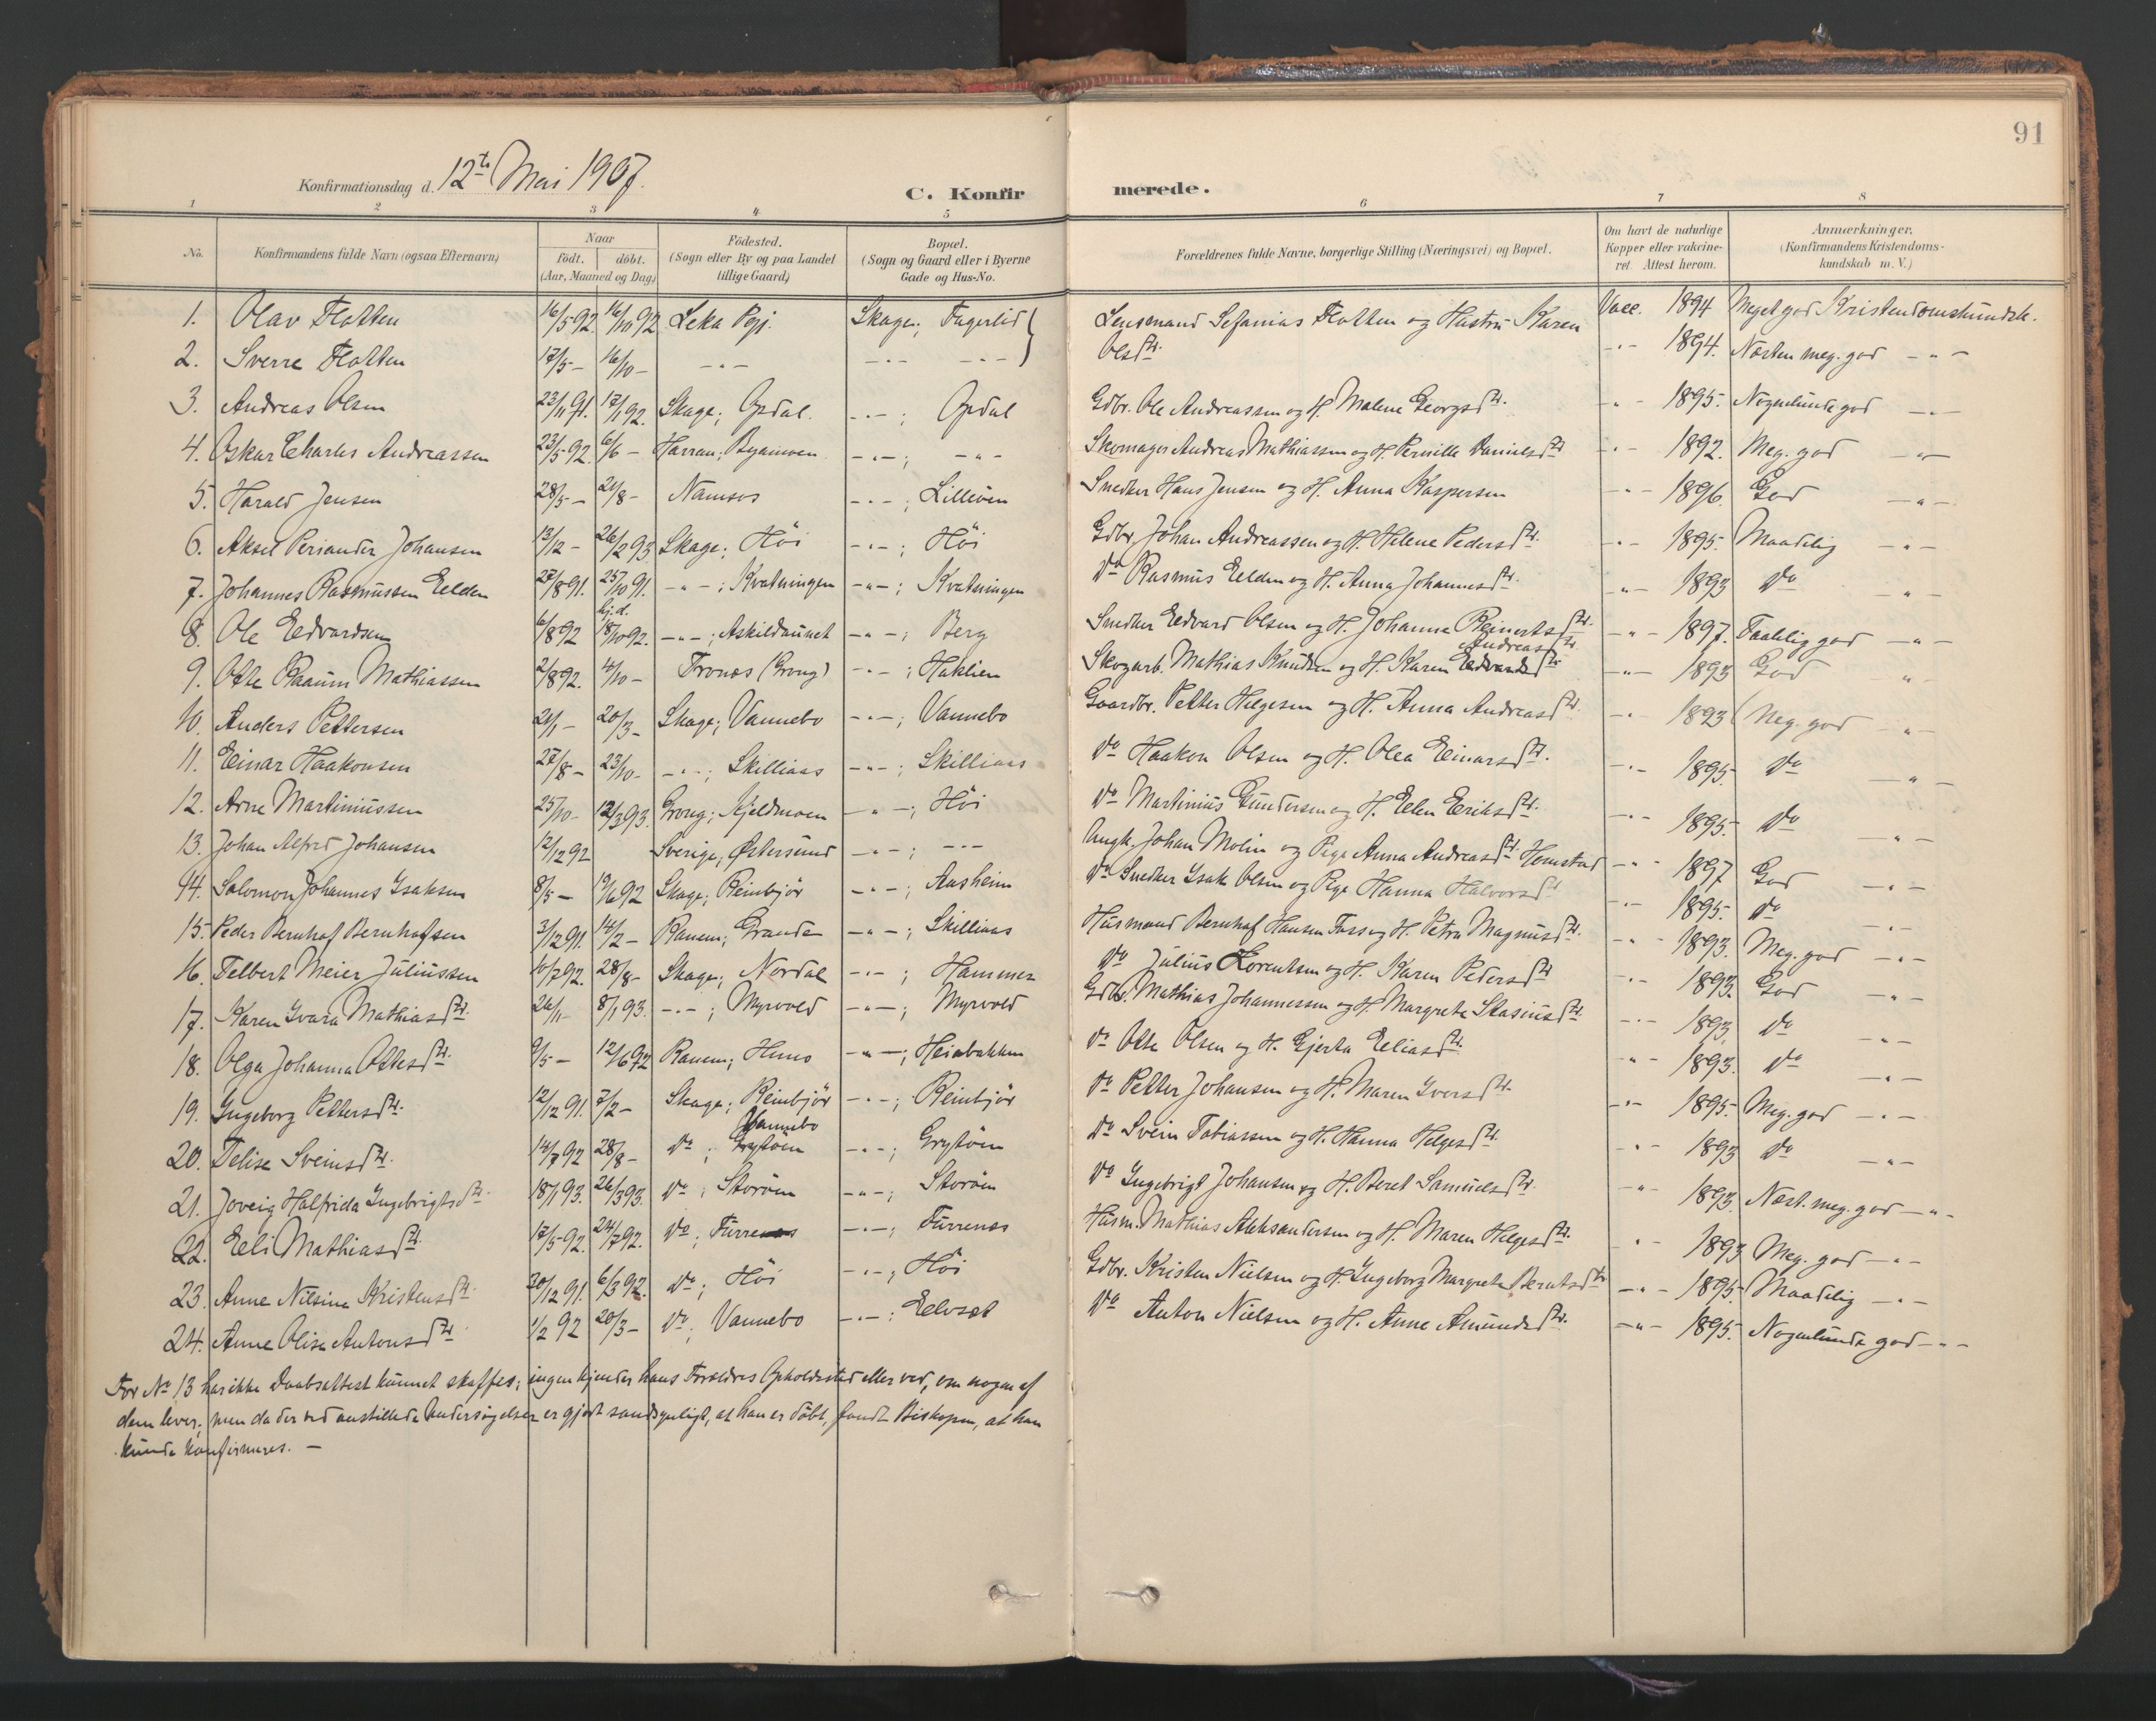 91
Konfirmationsdag d. 12te Mai 1907.
C. Konfirmerede.
1 2 3 4 5 6 7 8
No. Konfirmandens fulde Navn (ogsaa Efternavn) Naar födt. döbt. (Aar, Maaned og Dag) Födested. (Sogn eller By og paa Landet tillige Gaard) Bopæl. (Sogn og Gaard eller i Byerne Gade og Hus-No. Forældrenes fulde Navne, borgerlige Stilling (Næringsvei) og Bopæl. Om havt de naturlige Kopper eller vakcineret. Attest herom. Anmærkninger. (Konfirmandens Kristendomskundskab m. V.)
1. Olav Flotten 16/5 92. 16/10 92 Leka Pgj. Skage; Fagerlid Lensmand Sefanias Flotten og Hustru Karen Vacc. 1894 Meget god Kristendomskundsk.
2. Sverre Flotten 17/5 - 16/10 - -"- -"- -"- Olsdtr. -"- 1894. Næsten meg. god -"-
3. Andreas Olsen 23/11 91. 17/1 92. Skage; Opdal. -"-; Opdal Gdbr. Ole Andreassen og H. Malene Georgsdtr. -"- 1895. Nogenlunde god -"-
4. Oskar Charles Andreassen 23/5 92. 6/6 - Harran; -"-; -"- Skomager Andreas Mathiassen og H. Pernille Danielsdtr. -"- 1892. Meg. god -"-
5. Harald Jensen 28/5 - 21/8 - Namsos -"-; Lilleöen Snedker Hans Jensen og H. Anna Kaspersen -"- 1896. God -"-
6. Aksel Periander Johansen 13/12 - 26/2 93 Skage; Höi -"-; Höi Gdbr. Johan Andreassen og H. Helene Pedersdtr. -"- 1895. Maadelig -"-
7. Johannes Rasmussen Eelden 27/8 91. 25/10 91. -"-; Kvatningen -"-; Kvatningen Do Rasmus Eelden og H. Anna Johannesdtr. -"- 1893 Do -"-
8. Ole Eedvardsen 6/8 92 hj.d. 18/10 92. -"-; Askildaunet -"-; Berg Snedker Eedvard Olsen og H. Johanna Reinertsdtr. -"- 1897. Taalelig god -"-
9. Otte Raaum Mathiassen 2/8 92. 4/10 - Tronæs (Grong) -"-; Haklien Skogarb. Mathias Knudsen og H. Karen Eedvardsdtr. Andreasdtr. -"- 1893 God "
10. Anders Pettersen 21/1 - 20/3 - Skage; Vannebo -"-; Vannebo Gaardbr. Petter Helgesen og H. Anna Andreasdtr. -"- 1893 Meg. god -"-
11. Einar Haakonsen 27/8 - 23/10 - -"-; Skilliaas -"-; Skilliaas Do Haakon Olsen og H. Olea Einarsdtr. -"- 1895. Do -"-
12. Arne Martiniussen 25/10 - 12/3 93. Grong; Kjeldmoen -"-; Höi Do Martinius Gundersen og H. Elen Eriksdtr. -"- 1895. Do -"-
13. Johan Alfred Johansen 12/12 92 Sverige; Østersund -"-; -"- Ungk. Johan Molin og Pige Anna Andreasdtr. Homstad -"- 1897 God -"-
14. Salomon Johannes Isaksen 8/5 - 19/6 92 Skage; Reinbjör -"-; Aasheim Do Snedker Isak Olsen og Pige Hanna Halvorsdtr. -"- 1895. Do -"-
15. Peder Bernhof Bernhofsen 3/12 91. 14/2 - Ranem; Grande -"-; Skilliaas Husmand Bernhof Hansen Foss og H. Petra Magnusdtr. -"- 1893. Meg. god -"-
16. Telbert Meier Juliussen 10/7 92. 28/8 - Skage; Nordal -"-; Hammer Do Julius Lorentsen og H. Karen Pedersdtr. -"- 1893. God -"-
17. Karen Ivara Mathiasdtr. 26/11 - 8/1 93. -"-; Myrvold -"-; Myrvold Gdbr. Mathias Johannessen og H. Margrete Stasiusdtr. -"- 1893 Do -"-
18. Olga Johanna Ottesdtr. 9/5 - 12/6 92 Ranem; Huno -"-; Heiabakken Do Otte Olsen og H. Gjerta Eeliasdtr. -"- 1893. Do -"-
19. Ingeborg Pettersdtr. 12/12 91. 7/2 - Skage; Reinbjör -"-; Reinbjör Do Petter Johansen og H. Maren Iversdtr. -"- 1895. Meg. god -"-
20. Telise Sveinsdtr. 14/7 92 28/8 - Do; Grytöen Vannebo -"-; Grytöen Do Svein Tobiassen og H. Hanna Helgesdtr. -"- 1893 Do -"-
21. Joveig Halfrida Ingebrigtsdtr. 18/1 93. 26/3 93. Do; Storöen -"-; Storöen Do Ingebrigt Johansen og H. Beret Samuelsdtr. -"- 1893. Næst. meg. god -"-
22. Eeli Mathiasdtr. 17/5 92. 24/7 92. Do; Furrenes -"-; Furrenes Husm. Mathias Aleksandersen og H. Maren Helgesdtr. -"- 1893 Meg. god -"-
23. Anne Nilsine Kristensdtr. 20/12 91. 6/3 92. Do; Höi -"-; Höi Gdbr. Kristen Nielsen og H. Ingeborg Margrete Berntsdtr. -"- 1895. Maadelig -"-
24. Anne Olise Antonsdtr. 1/2 92 20/3 - Do; Vannebo -"-; Eelvset Do Anton Nielsen og H. Anne Amundsdtr. -"- 1895. Nogenlunde god -"-
For No 13 har ikke Daabsattest kunnet skaffes; ingen kjender hans Forældres Opholdssted eller ved, om nogen af
dem lever; men da der ved anstillede Undersøgelser er gjort sandsynligt, at han er döbt, fandt Biskopen, at han
kunde konfirmeres. -